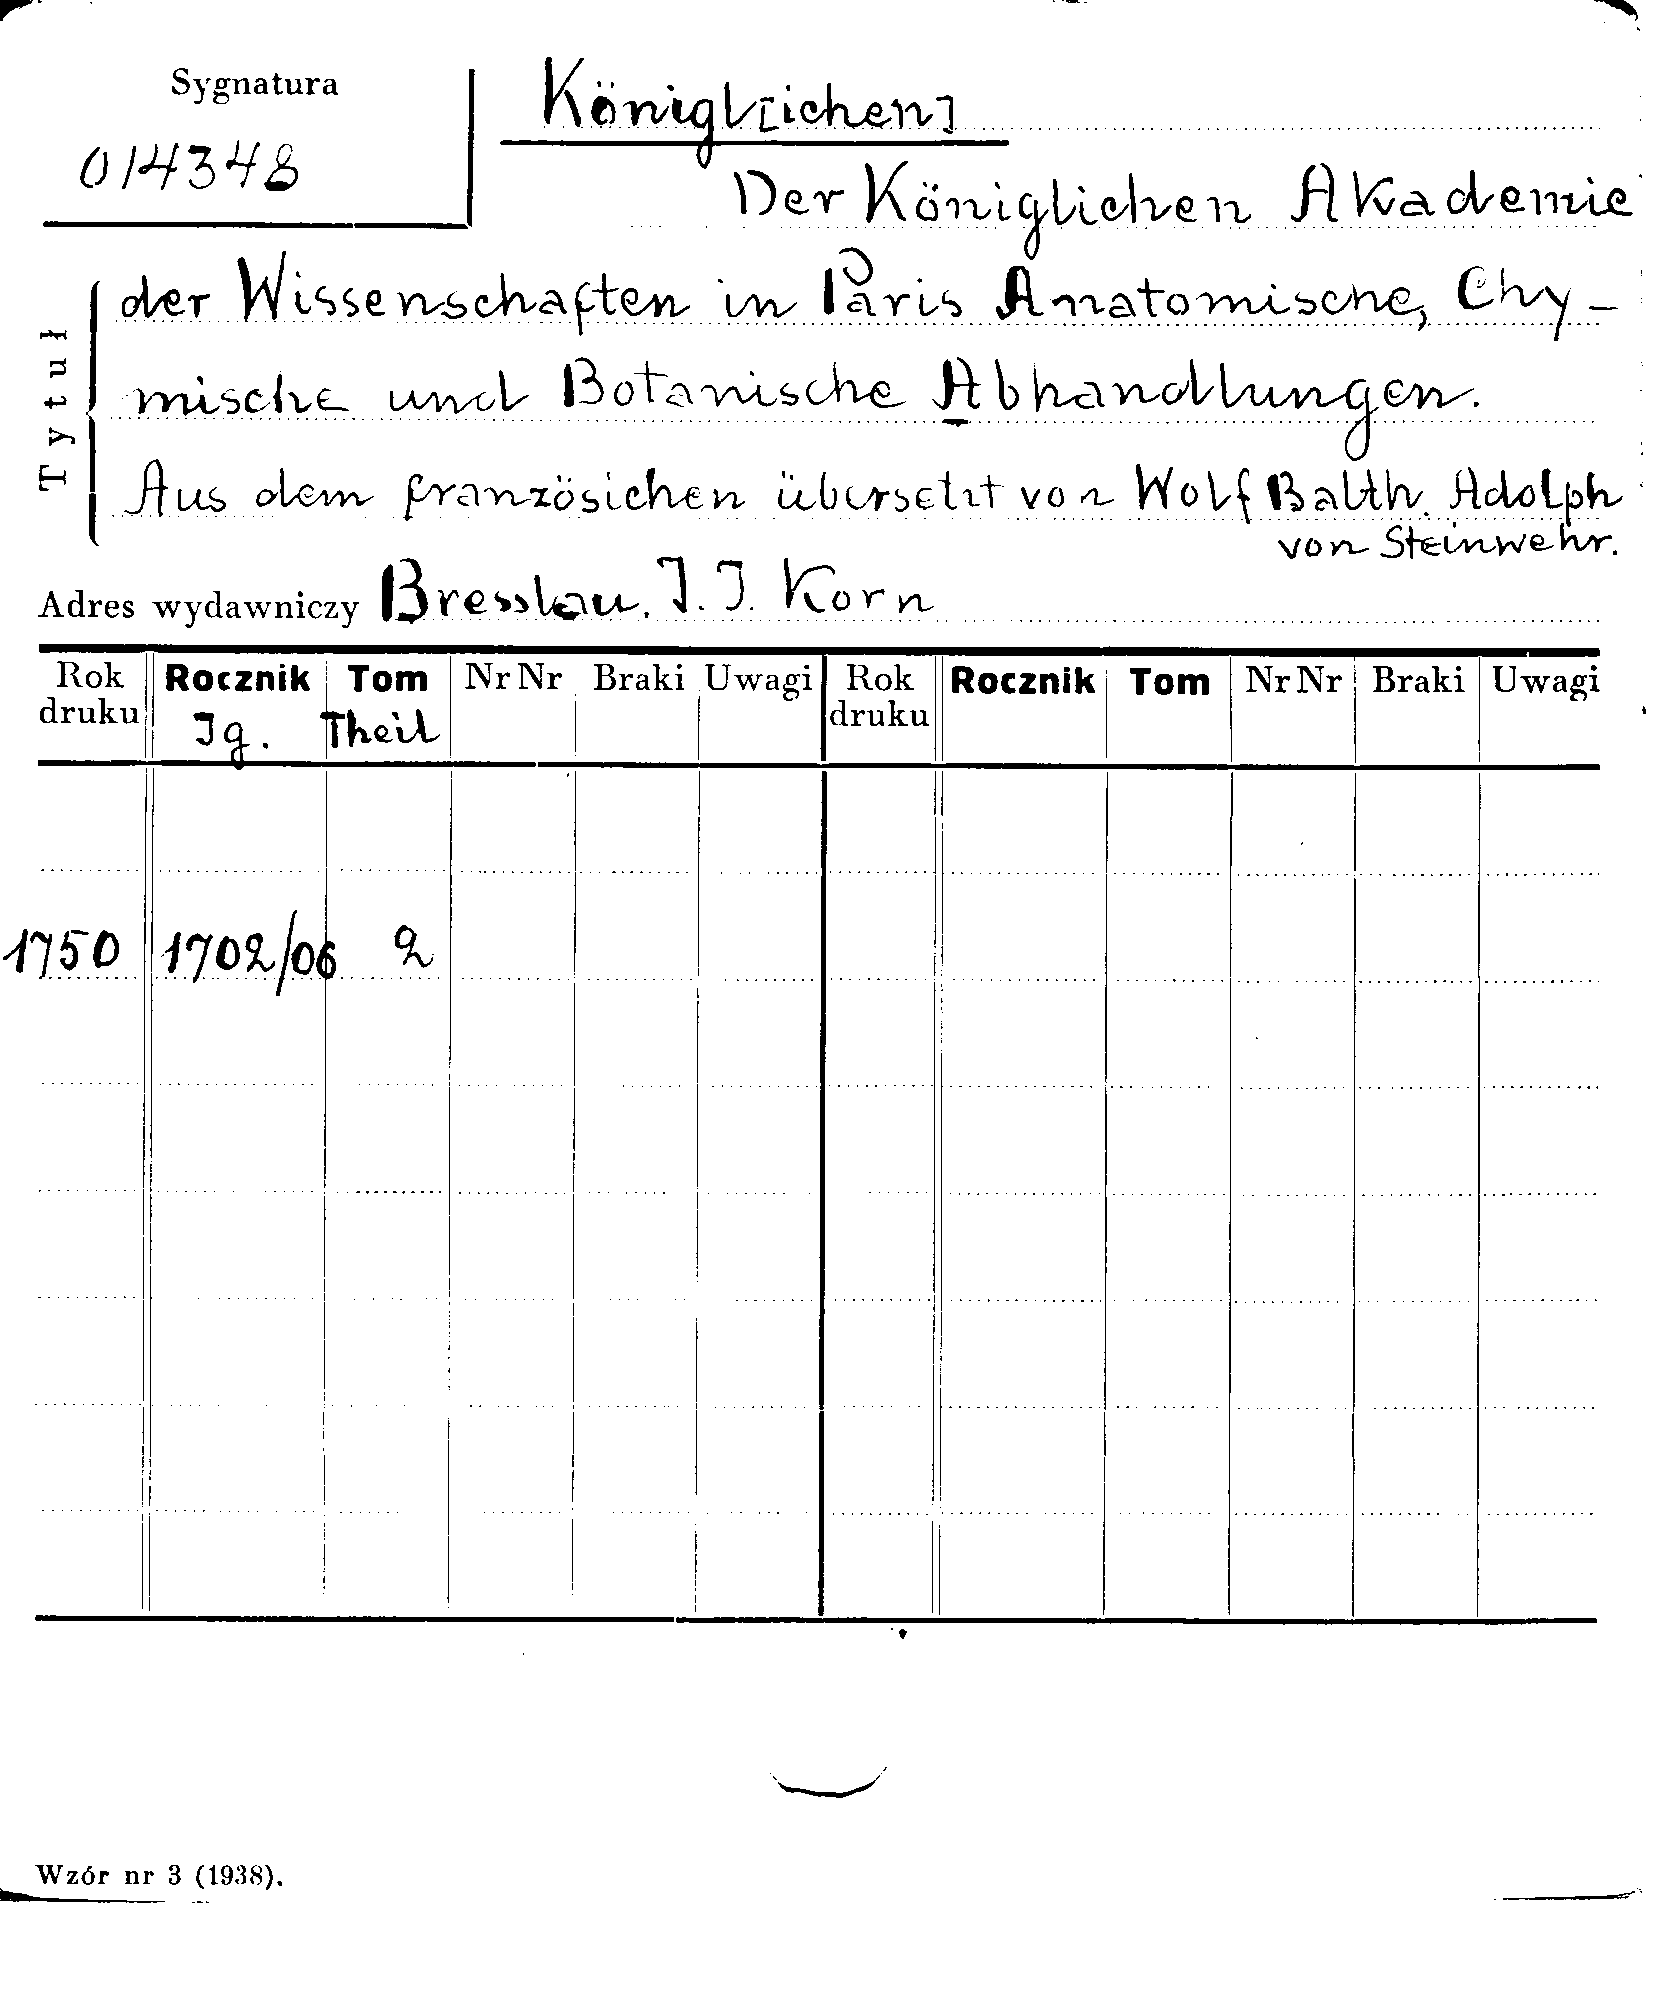 Sygnatura
014348
Königl[ichen]
Der Königlichen Akademie
der Wissenschaften in Paris Anatomische, Chy-
mische und Botanische Abhandlungen.
Aus dem französichen übersetzt von Wolf Balth. Adolph
von Steinwehr.
Tytuł
Adres wydawniczy Bresslau. J. J. Korn
Rok druku Rocznik Tom Nr Nr Braki Uwagi Rok druku Rocznik Tom Nr Nr Braki Uwagi
Jg. Theil
1750 1702/06 2
Wzór nr 3 (1938).